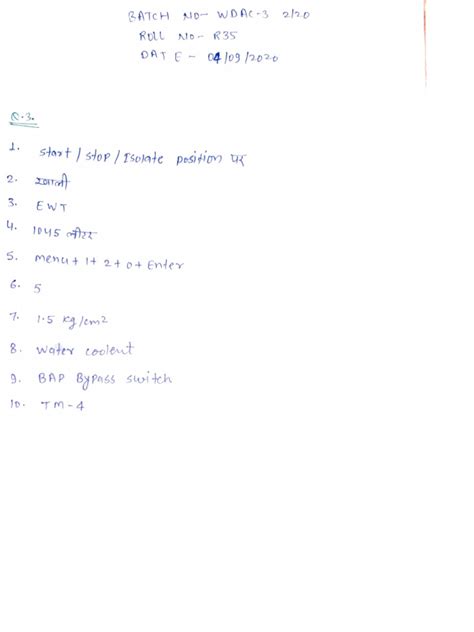 BATCH NO- WDAC-3 2/20
ROLL NO- R35
DATE - 04/09/2020
Q.3.
1. Start / Stop / Isolate position पर
2. खाली
3. EWT
4. 1045 लीटर
5. Menu + 1 + 2 + 0 + Enter
6. 5
7. 1.5 kg/cm2
8. Water coolent
9. BAP Bypass switch
10. TM-4